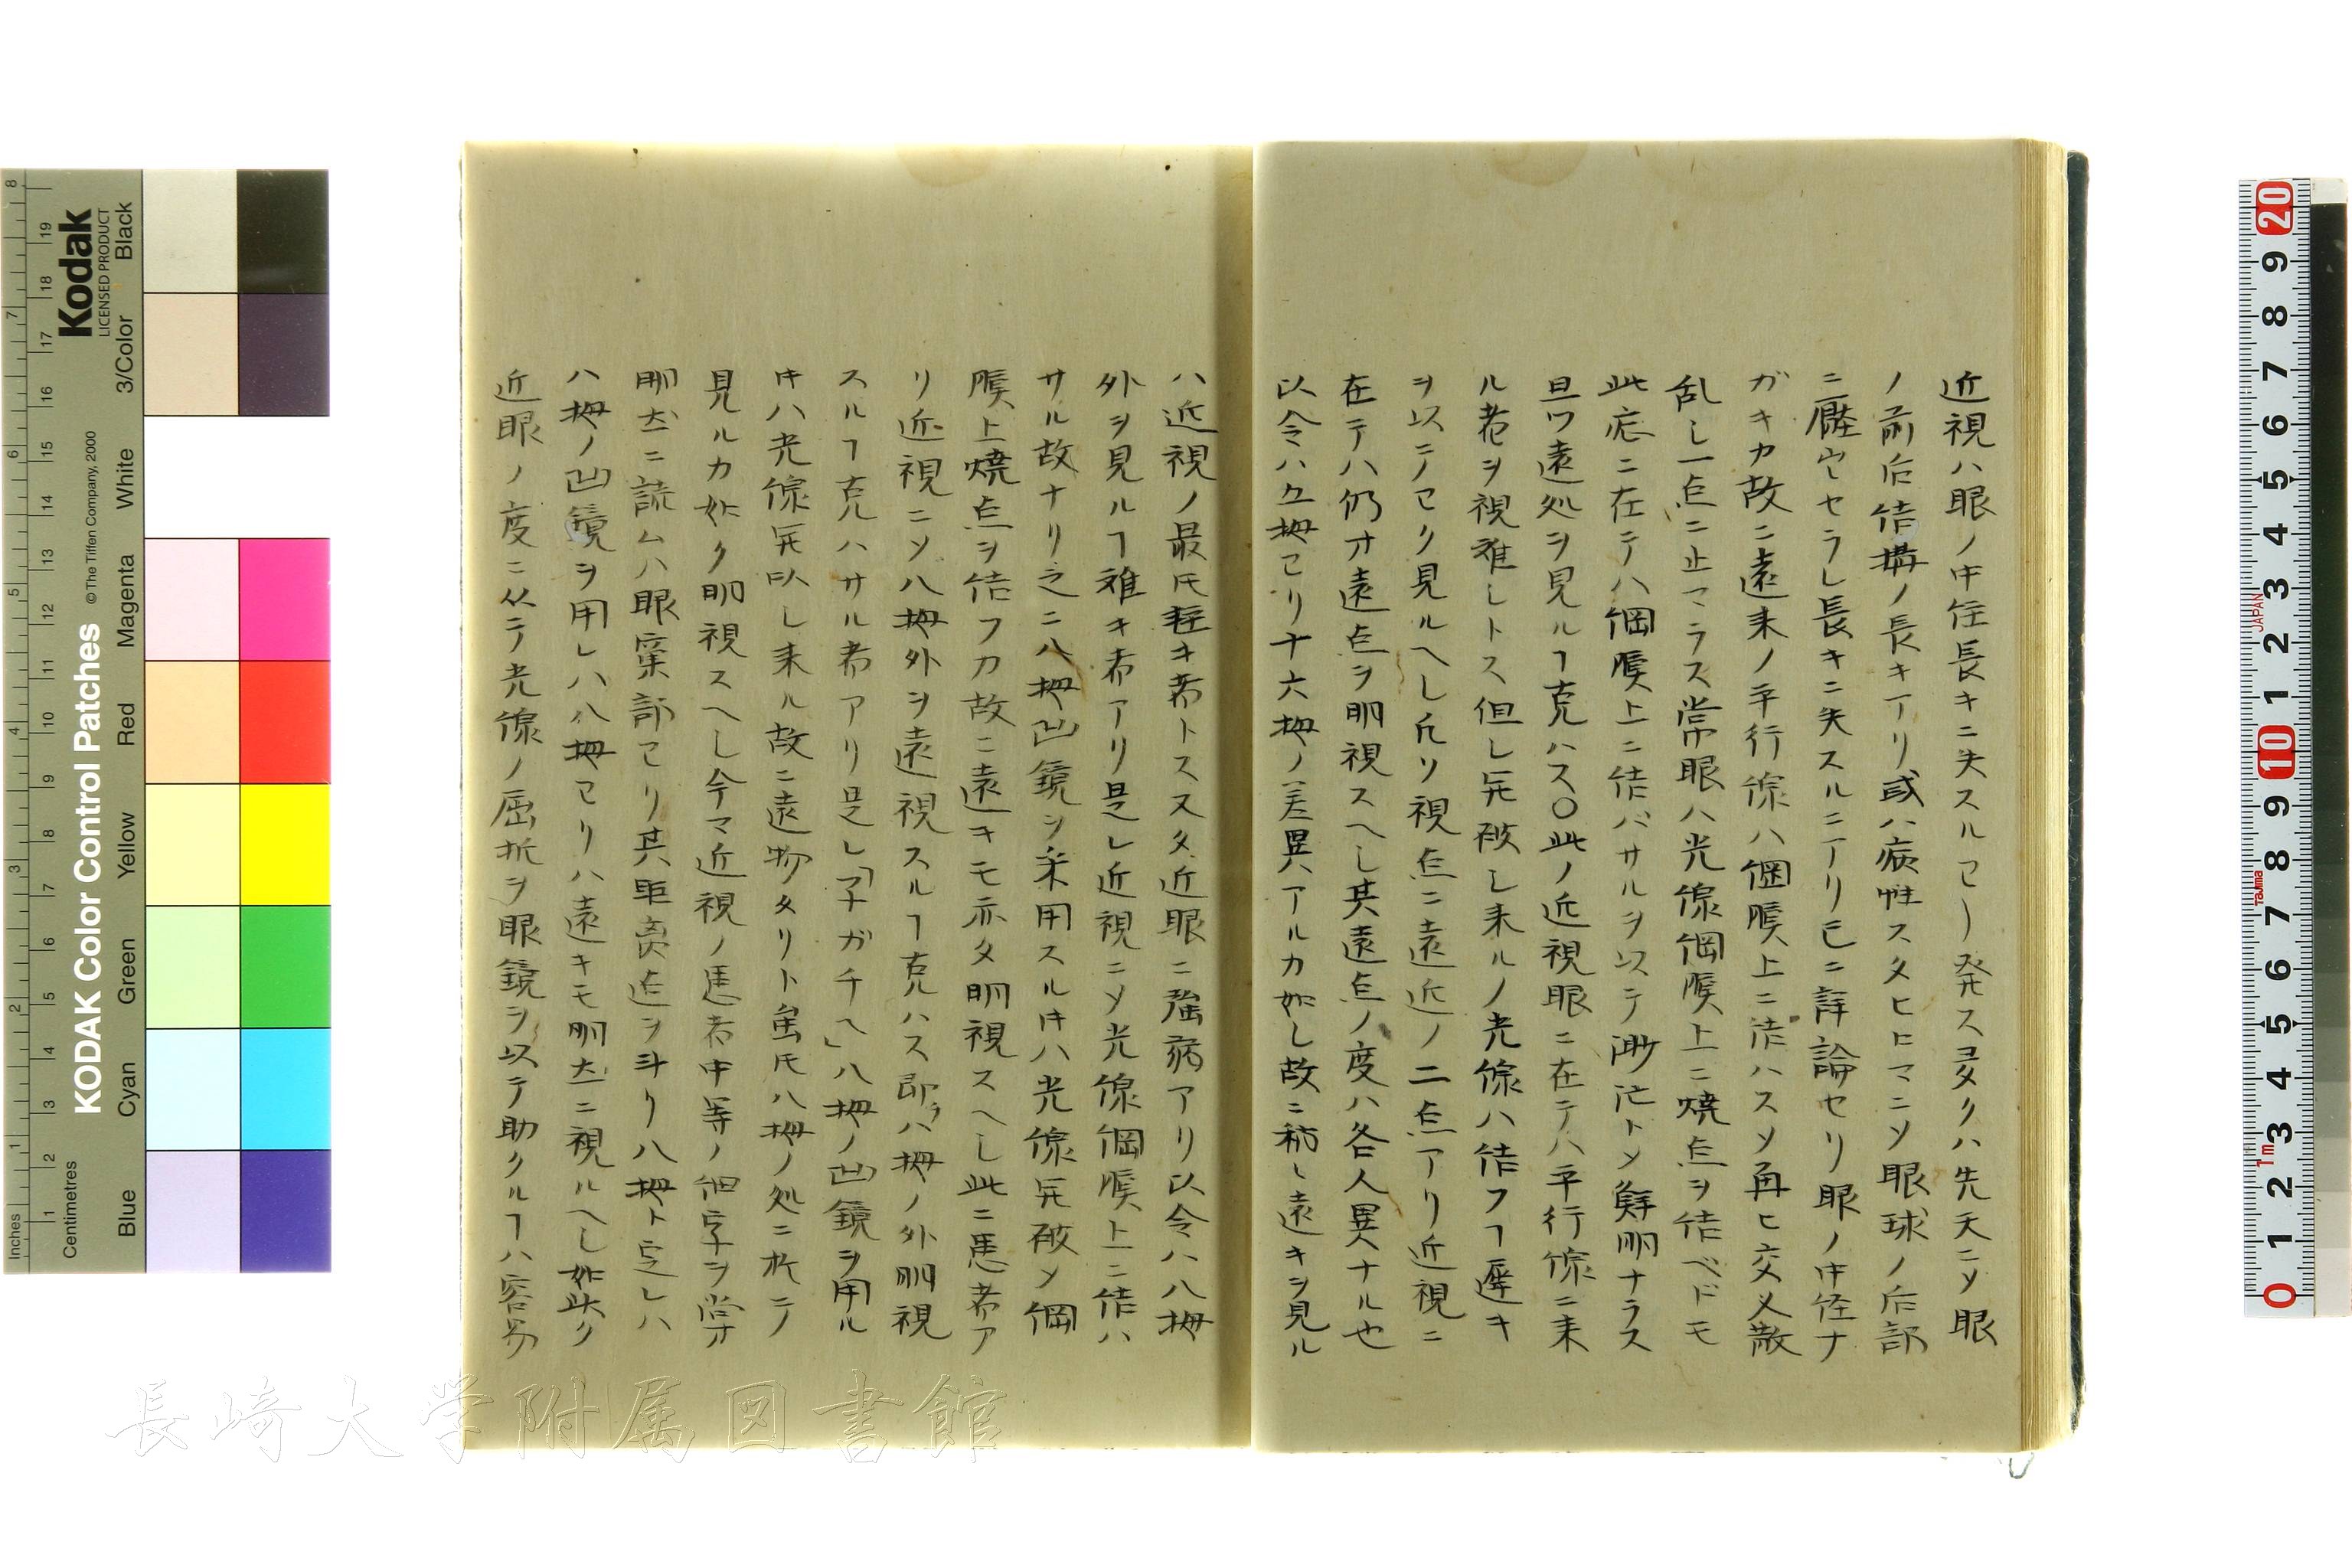 近視ハ眼ノ中径長キニ失スルヿ〻発ス多クハ先天ニ〆眼
ノ前后結構ノ長キアリ或ハ病性スタヒロマニ〆眼球ノ后部
ニ壓穵セラレ長キニ失スルニアリ已ニ詳論セリ眼ノ中径ナ
ガキカ故ニ遠来ノ平行線ハ個膜上ニ結ハス〆再ヒ交叉散
乱シ一点ニ止マラス常眼ハ光線個膜上ニ焼点ヲ結ベドモ
此症ニ在テハ個膜上ニ結バサルヲ以テ渺茫ト〆鮮明ナラス
且ツ遠処ヲ見ルヿ克ハス〇此ノ近視眼ニ在テハ平行線ニ来
ル者ヲ視難シトス但シ開散シ来ルノ光線ハ結フヿ遅キ
ヲ以テヨク見ルヘシ凡ソ視点ニ遠近ノ二点アリ近視ニ
在テハ仍オ遠点ヲ明視スヘシ其遠点ノ度ハ各人異ナル也
以令ハ八拇ヨリ十六拇ノ差異アルカ如シ故ニ稍〻遠キヲ見ル
ハ近視ノ最モ軽キ者トス又タ近眼ニ強病アリ以令ハ八拇
外ヲ見ルヿ難キ者アリ是レ近視ニ〆光線個膜上ニ結ハ
サル故ナリ之ニ八拇凹鏡ヲ采用スルキハ光線開散〆個
膜上焼点ヲ結フカ故ニ遠キモ亦タ明視スヘシ此ニ患者ア
リ近視ニ〆八拇外ヲ遠視スルヿ克ハス即ラ八拇ノ外明視
スルヿ克ハサル者アリ是レ「子ガチヘ」八拇ノ凹鏡ヲ用ル
キハ光線開以シ来ル故ニ遠物タリト虽氏八拇ノ処ニ於テ
見ルカ如ク明視スヘシ今マ近視ノ患者中等ノ細字ヲ常オ
明亮ニ読ムハ眼窠部ヨリ其距离遠ヲ斗リ八拇ト定レハ
八拇ノ凹鏡ヲ用レハ八拇ヨリハ遠キモ明亮ニ視ルヘシ如此ク
近眼ノ度ニ从テ光線ノ屈折ヲ眼鏡ヲ以テ助クルヿハ容易
長崎大学附属図書館
KODAK Color Control Patches
© The Tiffen Company, 2000
Kodak
LICENSED PRODUCT
Inches
Centimetres
Blue
Cyan
Green
Yellow
Red
Magenta
White
3/Color
Black
JAPAN
Tajima
1m